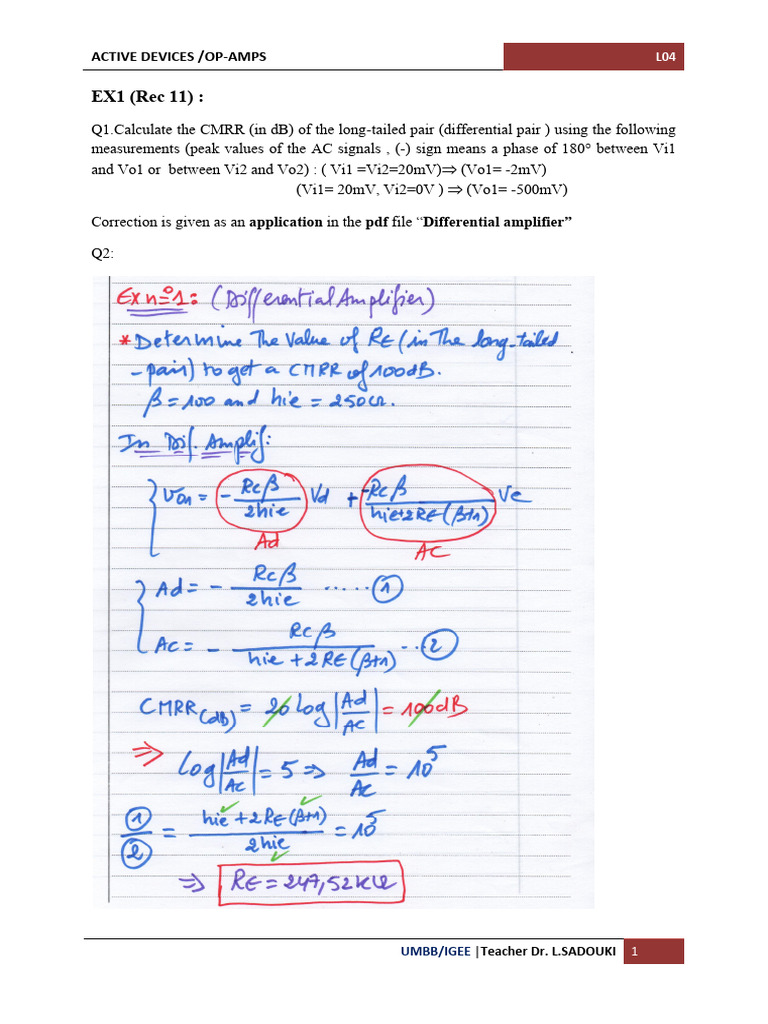 ACTIVE DEVICES /OP-AMPS L04
EX1 (Rec 11) :
Q1.Calculate the CMRR (in dB) of the long-tailed pair (differential pair ) using the following
measurements (peak values of the AC signals , (-) sign means a phase of 180° between Vi1
and Vo1 or between Vi2 and Vo2) : ( Vi1 =Vi2=20mV)⇒ (Vo1= -2mV)
(Vi1= 20mV, Vi2=0V ) ⇒ (Vo1= -500mV)
Correction is given as an application in the pdf file “Differential amplifier”
Q2:
Ex n°1: (Differential Amplifier)
* Determine The Value of RE (in The long-tailed
-pair) to get a CMRR of 100dB.
β = 100 and hie = 250Ω.
In Dif. Amplif:
Vo1 = - Rcβ / 2hie Vd + -Rcβ / hie+2RE(β+1) Vc
Ad AC
Ad = - Rcβ / 2hie ..... ①
Ac = - Rcβ / hie + 2RE(β+1) .. ②
CMRR(dB) = 20 log |Ad / AC| = 100dB
⇒ log |Ad / Ac| = 5 ⇒ Ad / Ac = 10^5
① / ② = hie + 2RE(β+1) / 2hie = 10^5
⇒ RE = 247,52kΩ
UMBB/IGEE |Teacher Dr. L.SADOUKI 1